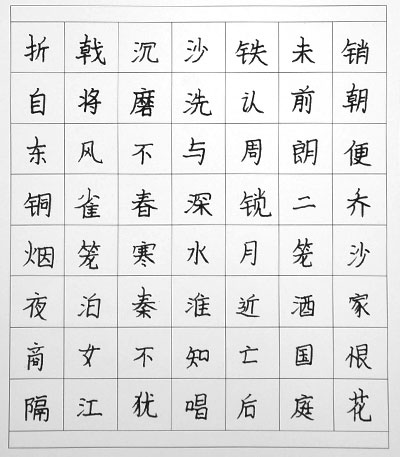 折戟沉沙铁未销
自将磨洗认前朝
东风不与周朗便
铜雀春深锁二乔
烟笼寒水月笼沙
夜泊秦淮近酒家
商女不知亡国恨
隔江犹唱后庭花